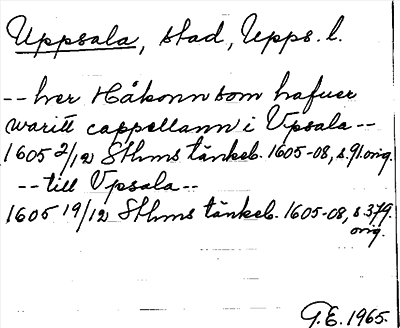 Uppsala, stad, Upps. l.
-- her Håkonn som hafuer
waritt cappellann i Vpsala --
1605 2/12 Sthms tänkeb. 1605-08, s. 91. orig.
-- till Vpsala --
1605 19/12 Sthms tänkeb. 1605-08, s. 379.
orig.
T.E. 1965.